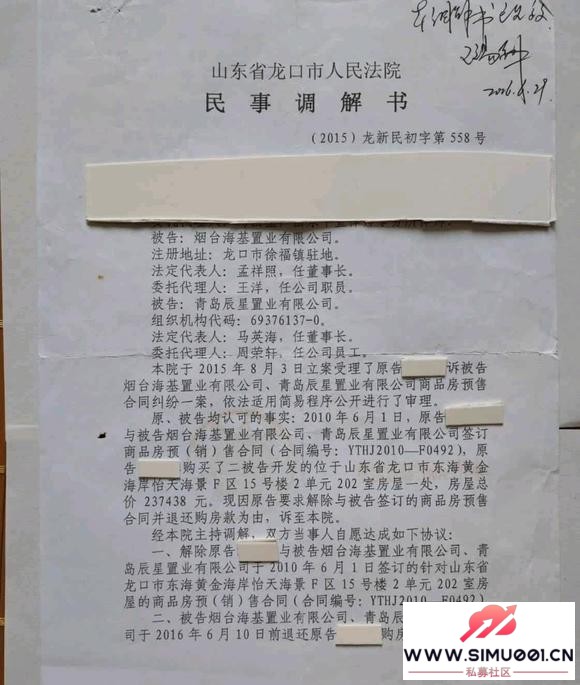 2016.6.29
山东省龙口市人民法院
民事调解书
（2015）龙新民初字第558号
被告：烟台海基置业有限公司。
注册地址：龙口市徐福镇驻地。
法定代表人：孟祥照，任董事长。
委托代理人：王洋，任公司职员。
被告：青岛辰星置业有限公司。
组织机构代码：69376137-0。
法定代表人：马英海，任董事长。
委托代理人：周荣轩，任公司员工。
本院于2015年8月3日立案受理了原告 诉被告
烟台海基置业有限公司、青岛辰星置业有限公司商品房预售
合同纠纷一案，依法适用简易程序公开进行了审理。
原、被告均认可的事实：2010年6月1日，原告
与被告烟台海基置业有限公司、青岛辰星置业有限公司签订
商品房预（销）售合同（合同编号：YTHJ2010—F0492），原
告 购买了二被告开发的位于山东省龙口市东海黄金
海岸怡天海景F区15号楼2单元202室房屋一处，房屋总
价237438元。现因原告要求解除与被告签订的商品房预售
合同并退还购房款为由，诉至本院。
经本院主持调解，双方当事人自愿达成如下协议：
一、解除原告 与被告烟台海基置业有限公司、青
岛辰星置业有限公司于2010年6月1日签订的针对山东省
龙口市东海黄金海岸怡天海景F区15号楼2单元202室房
屋的商品房预（销）售合同（合同编号：YTHJ2010—F0492）
二、被告烟台海基置业有限公司、青岛辰星
司于2016年6月10日前退还原告 购房
WWW.SIMU001.CN
私募社区